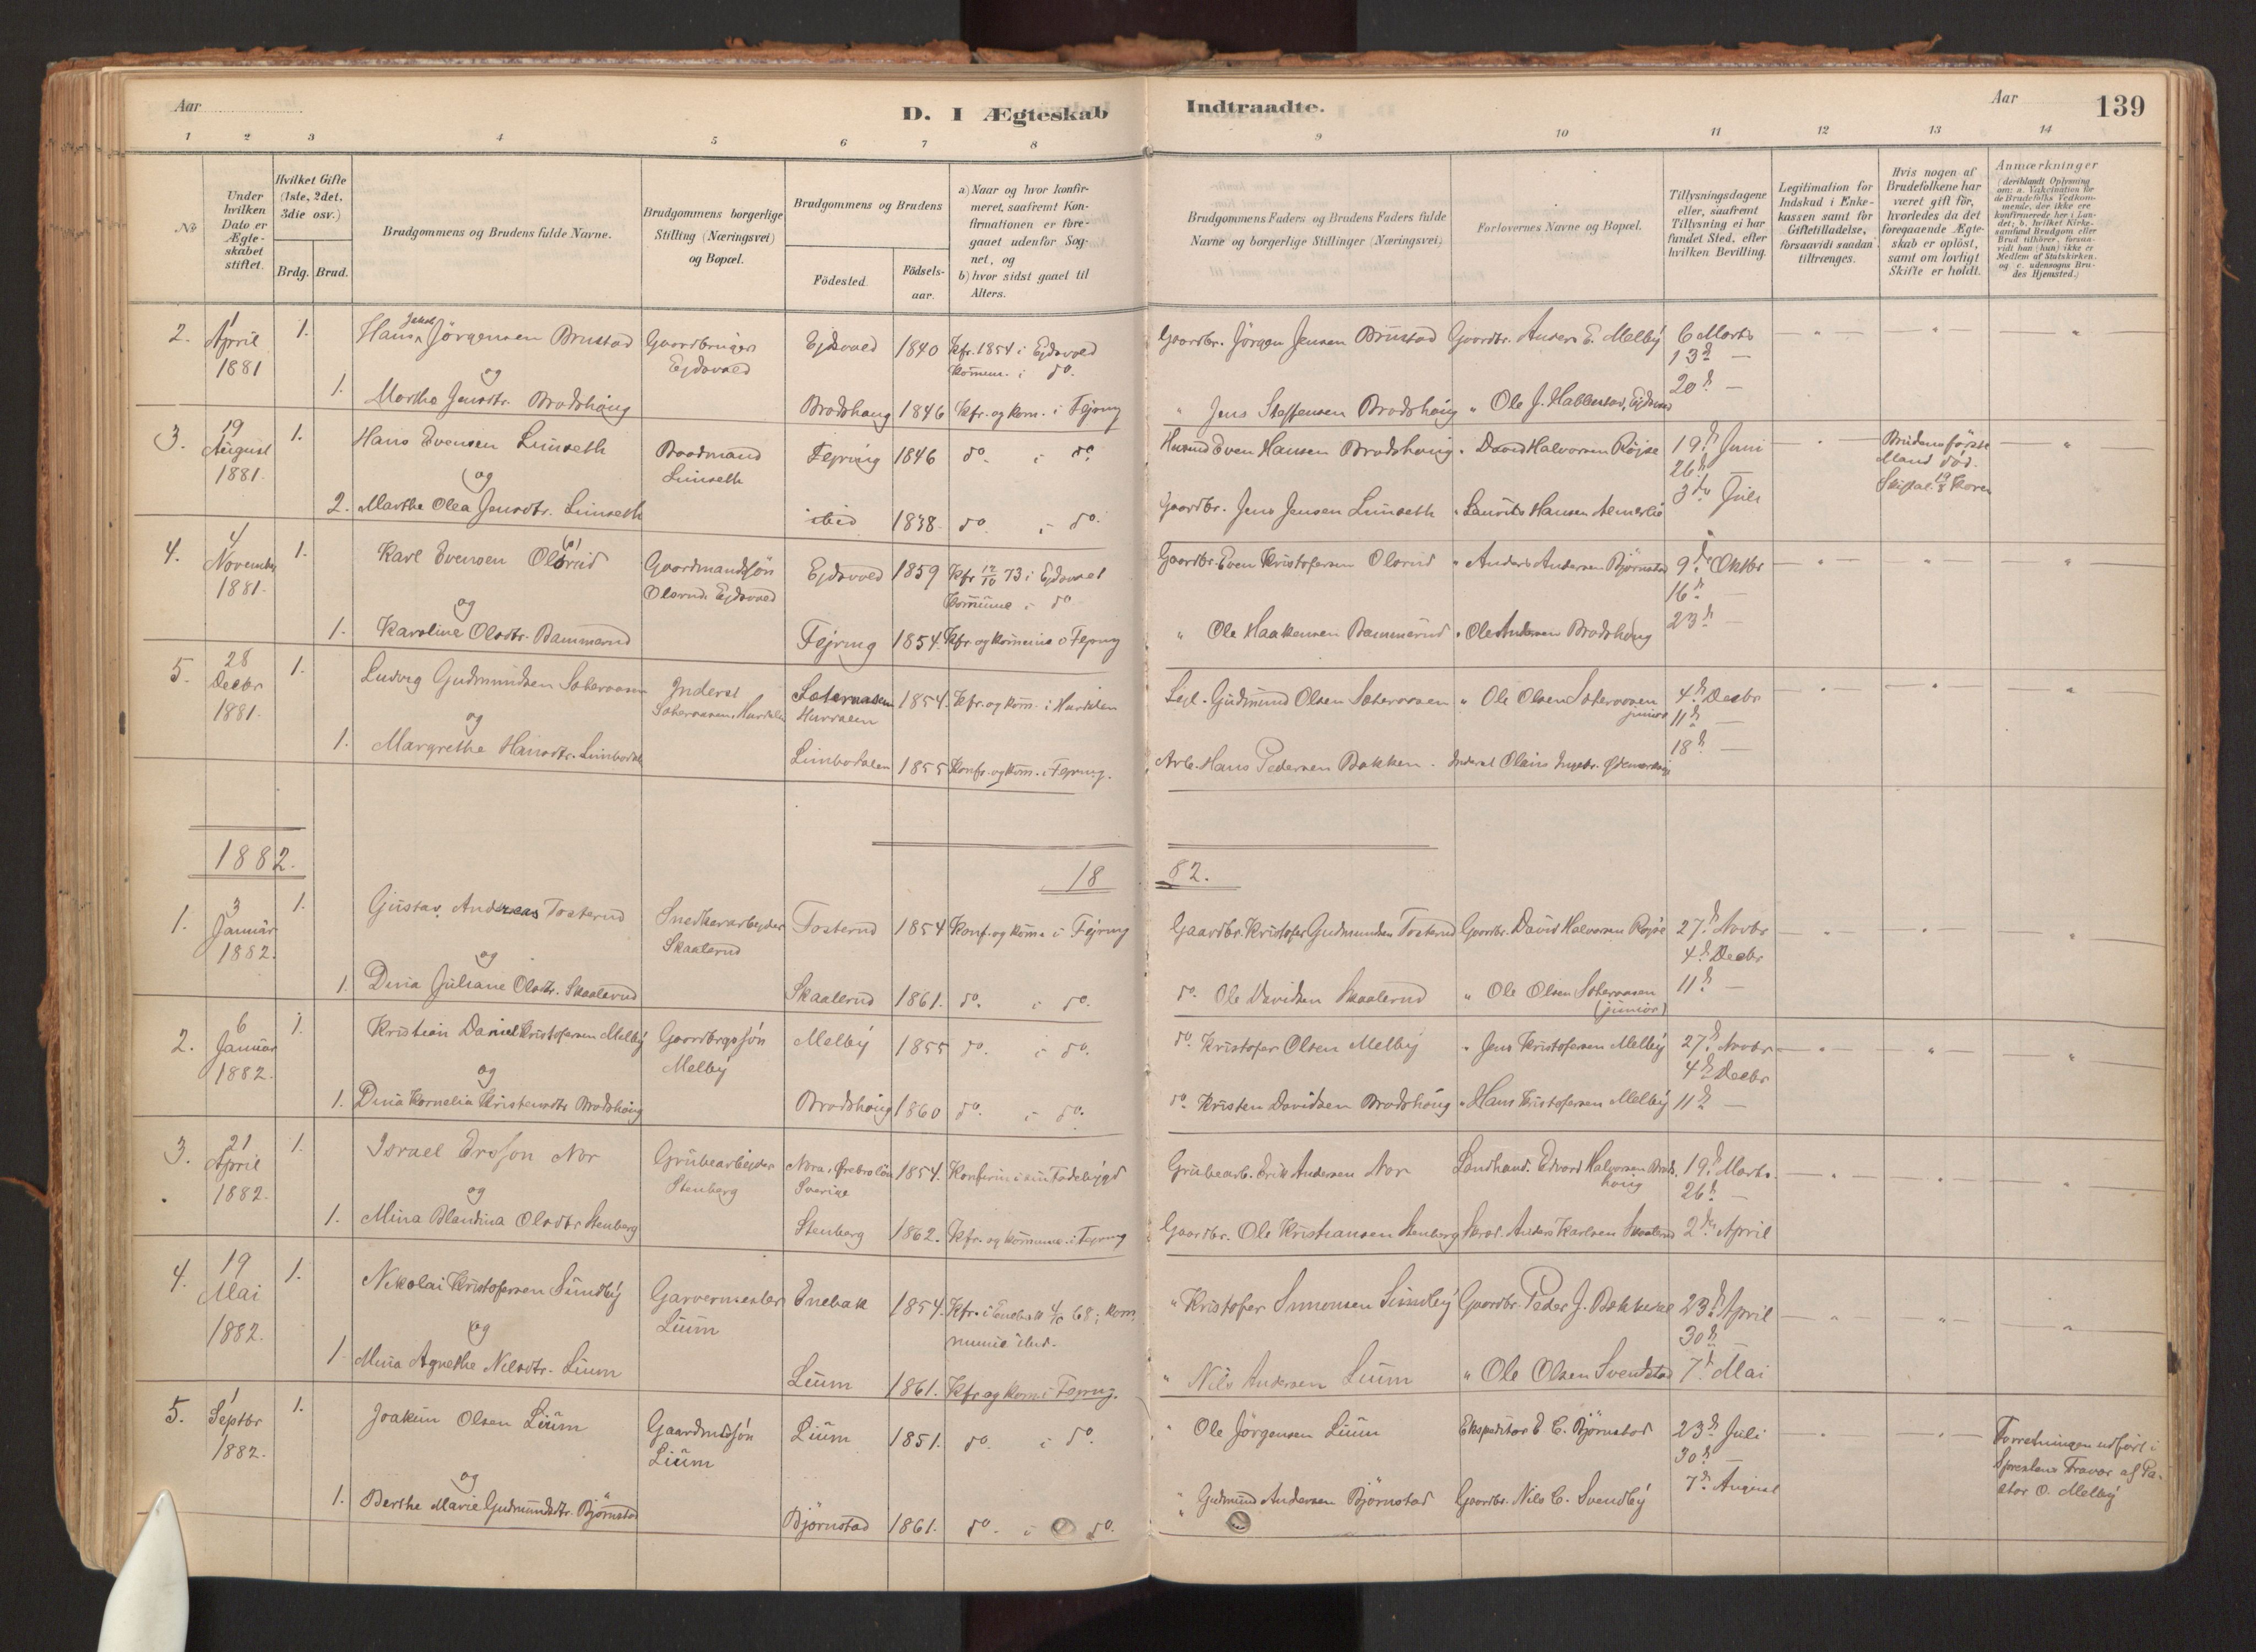 Aar
D. I Ægteskab
Indtraadte.
Aar
139
1 2 3 4 5 6 7 8 9 10 11 12 13 14
No
Under hvilken Dato er Ægteskabet stiftet.
Hvilket Gifte (1ste, 2det, 3die osv.)
Brdg. Brud.
Brudgommens og Brudens fulde Navne.
Brudgommens borgerlige Stilling (Næringsvei) og Bopæl.
Brudgommens og Brudens
Fødested.
Fødsels-aar.
a) Naar og hvor konfirmeret, saafremt Konfirmationen er foregaaet udenfor Sognet, og
b) hvor sidst gaaet til Alters.
Brudgommens Faders og Brudens Faders fulde Navne og borgerlige Stillinger (Næringsvei)
Forlovernes Navne og Bopæl.
Tillysningsdagene eller, saafremt Tillysning ei har fundet Sted, efter hvilken Bevilling.
Legitimation for Indskud i Enkekassen samt for Giftetilladelse, forsaavidt saadan tiltrænges.
Hvis nogen af Brudefolkene har været gift før, hvorledes da det foregaaende Ægteskab er opløst, samt om lovligt Skifte er holdt.
Anmærkninger
(deriblandt Oplysning om: a. Vakcination for de Brudefolks Vedkommende, der ikke ere konfirmerede her i Landet; b. hvilket Kirkesamfund Brudgom eller Brud tilhører, forsaavidt han (hun) ikke er Medlem af Statskirken. og c. udensogns Brudes Hjemsted.)
2. 1 April 1881 1. Hans Jakob Jørgensen Brustad Gaardbruger Ejdsvold Ejdsvold 1840 Kfr. 1854 i Ejdsvold Kommun. i do. Gaardbr. Jørgen Jensen Brustad Gaardbr. Anders E. Melby 6 Marts 13de — 20de —
og
1. Marthe Jensdtr. Brodshaug Brodshaug 1846 Kfr. og kom. i Fejring " Jens Steffensen Brodshaug " Ole J. Habberstad, Ejdsvold
3. 19 August 1881. 1. Hans Evensen Lunseth Baadmand Lunseth Fejring 1846 do. i do. Husmd Even Hansen Brodshaug " David Halvorsen Røjse 19de Juni 26de — 3die Juli Brudens første Mand død.
og
2. Marthe Olea Jensdtr. Lunseth ibid 1838. do. i do. Gaardbr. Jens Jensen Lunseth " Laurits Hansen Almerlie
4. 4 November 1881. 1. Karl Evensen Olsrud Gaardmandssøn Olsrud Ejdsvold Ejdsvold 1859 Kfr 12/10 73 i Ejdsvold Kommune i do Gaardbr. Even Kristofersen Olsrud " Anders Andersen Bjørnstad 9de Oktbr 16de — 23de —
og
1. Karoline Olsdtr. Bammerud Fejring 1854. Kfr og kommune i Fejring " Ole Haakensen Bammerud " Ole Andersen Brodshaug
5. 28 Decbr 1881. 1. Ludvig Gudmundsen Sæteraasen Inderst Sæteraasen, Hurdalen Sæteraasen Hurdalen 1854. Kfr. og kom. i Hurdalen Gudmund Olsen Sæteraasen " Ole Olsen Sæteraasen junior 4de Decbr 11de — 18de —
og
1. Margrethe Hansdtr. Limbodal Limbodalen 1855 Konfr. og kom. i Fejring. Arb. Hans Pedersen Bakken. Inderst
1882.
18 82.
1. 3 Januar 1882. 1. Gustav Andreas Tosterud Snedkerarbejder Skaalerud Tosterud 1854 Konf. og kom. i Fejring Gaardbr. Kristofer Gudmundsen Tosterud Gaardbr. David Halvorsen Røjse 27de Novbr 4de Decbr 11de —
og
1. Dina Juliane Olsdtr. Skaalerud Skaalerud 1861. do. i do. do. Ole Davidsen Skaalerud " Ole Olsen Sæteraasen (junior)
2. 6 Januar 1882. 1. Kristian Daniel Kristofersen Melby Gaardbrgssøn Melby Melby 1855 do. i do. do. Kristofer Olsen Melby " Jens Kristofersen Melby 27de Novbr 4de Decbr 11de —
og
1. Dina Kornelia Kristensdtr Brodshaug Brodshaug 1860 do. i do. do. Kristen Davidsen Brodshaug " Hans Kristofersen Melby
3. 21 April 1882. 1. Israel Ersson Nor Grubearbejder Stenberg Nora, Ørebro län Sverige 1854. Konfirm i sin Fødebygd Grubearb. Erik Andersen Nor Landhand. Edvard Halvorsen Brodshaug 19de Marts. 26de — 2den April
og
1. Mina Blandina Olsdtr Stenberg Stenberg 1862. Kfr. og kommune. i Fejring Gaardbr. Ole Kristiansen Stenberg Anders Karlsen Skaalerud
4. 19 Mai 1882. 1. Nikolai Kristofersen Sundby Garvermester Lium Enebak 1854. Kfr. i Enebak 4/10 68; kommune ibid. " Kristofer Simonsen Sundby Gaardbr. Peder J. Bakkene 23de April 30de — 7de Mai
og
1. Mina Agnethe Nilsdtr. Lium Lium 1861. Kfr og kom. i Fejring. " Nils Andersen Lium " Ole Olsen Svendstad
5. 1 Septbr 1882. 1. Joakim Olsen Lium Gaardmdssøn Lium Lium 1851. do. i do. " Ole Jørgensen Lium Ekspeditør E. C. Bjørnstad 23de Juli 30de — 7de August Forretningen udført i Fravær af Pastor O. Melby
og
1. Berthe Marie Gudmundsdtr. Bjørnstad Bjørnstad 1861. do. i do. " Gudmund Andersen Bjørnstad Gaardbr. Nils C. Svendby